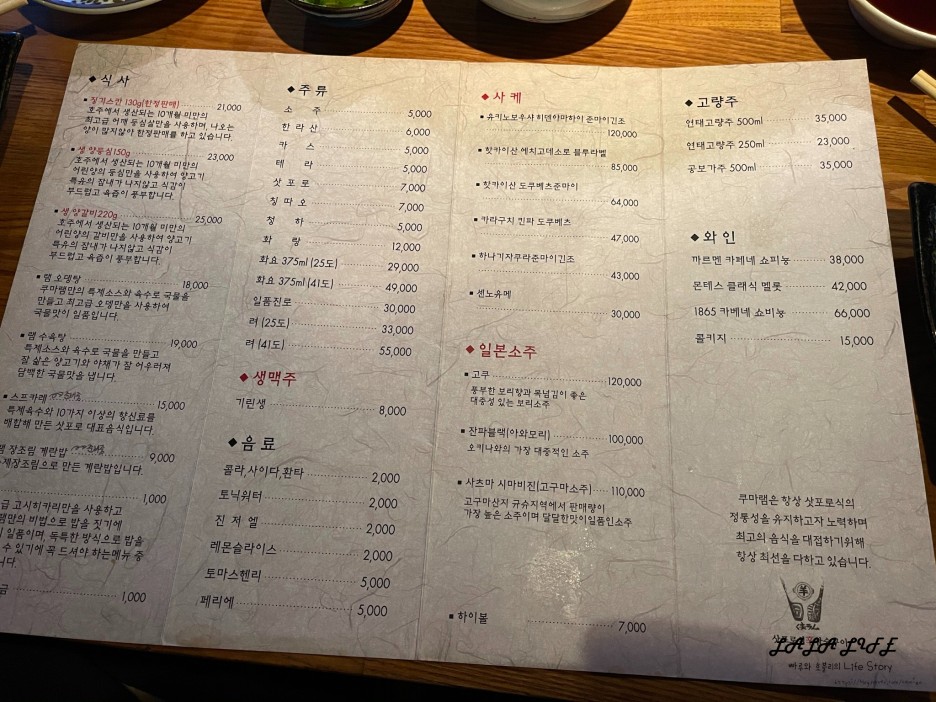 ◆ 식 사
▪ 징기스칸 130g(한정판매) 21,000
호주에서 생산되는 10개월 미만의
최고급 어깨 등심살만을 사용하며, 나오는
양이 많지않아 한정판매를 하고 있습니다.
▪ 생 양등심150g 23,000
호주에서 생산되는 10개월 미만의
어린양의 등심만을 사용하여 양고기
특유의 잡내가 나지않고 식감이
부드럽고 육즙이 풍부합니다.
▪ 생 양갈비220g 25,000
호주에서 생산되는 10개월 미만의
어린양의 갈비만을 사용하여 양고기
특유의 잡내가 나지않고 식감이
부드럽고 육즙이 풍부합니다.
▪ 램 오뎅탕 18,000
쿠마램만의 특제소스와 육수로 국물을
만들고 최고급 오뎅만을 사용하여
국물맛이 일품입니다.
▪ 램 수육탕 19,000
특제소스와 육수로 국물을 만들고
잘 삶은 양고기와 야채가 잘 어우러져
담백한 국물맛을 냅니다.
▪ 스프카레 15,000
특제육수와 10가지 이상의 향신료를
배합해 만든 삿포로 대표음식입니다.
장조림 계란밥 9,000
장조림으로 만든 계란밥입니다.
1,000
급 고시히카리만을 사용하고
램만의 비법으로 밥을 짓기에
일품이며, 독특한 방식으로 밥을
수 있기에 꼭 드셔야 하는메뉴 중
니다.
금 1,000
◆ 주 류
소 주 5,000
한 라 산 6,000
카 스 5,000
테 라 5,000
삿 포 로 7,000
칭 따 오 7,000
청 하 5,000
화 랑 12,000
화요 375ml (25도) 29,000
화요 375ml (41도) 49,000
일품진로 30,000
려 (25도) 33,000
려 (41도) 55,000
◆ 생맥주
기린생 8,000
◆ 음 료
콜라,사이다,환타 2,000
토닉워터 2,000
진 져 엘 2,000
레몬슬라이스 2,000
토마스헨리 5,000
페리에 5,000
◆ 사 케
▪ 유키노보우샤 히덴야마하이 준마이긴조
120,000
▪ 핫카이산 에치고데소로 블루라벨
85,000
▪ 핫카이산 도쿠베츠준마이
64,000
▪ 카라구치 킨파 도쿠베츠
47,000
▪ 하나기자쿠라준마이긴조
43,000
▪ 센노유메
30,000
◆ 일본소주
▪ 고쿠 120,000
풍부한 보리향과 목넘김이 좋은
대중성 있는 보리소주
▪ 잔파블랙(아와모리) 100,000
오키나와의 가장 대중적인 소주
▪ 사츠마 시마비진(고구마소주) 110,000
고구마산지 규슈지역에서 판매량이
가장 높은 소주이며 달달한맛이일품인소주
▪ 하이볼 7,000
◆ 고량주
연태고량주 500ml 35,000
연태고량주 250ml 23,000
공보가주 500ml 35,000
◆ 와 인
까르멘 카베네 쇼비뇽 38,000
몬테스 클래식 멜롯 42,000
1865 카베네 쇼비뇽 66,000
콜키지 15,000
쿠마램은 항상 삿포로식의
정통성을 유지하고자 노력하며
최고의 음식을 대접하기위해
항상 최선을 다하고 있습니다.
羊
くまラム
LALA LIFE
Life Story